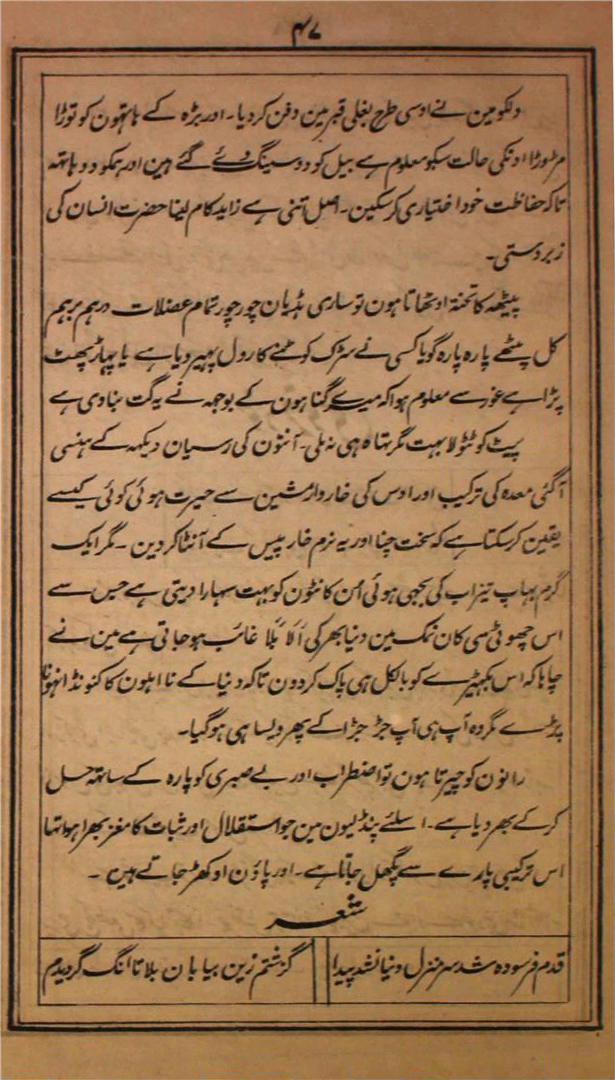 ۴۷
دلکو مین نے اوسی طرح بغلی قبر مین دفن کر دیا۔ اور بڑہ کے ہاتہون کو توڑا
مڑوڑا اونکی حالت سبکو معلوم ہے بیل کو دو سینگ دئے گئے ہین اور ہمکو دو ہاتہہ
تاکہ حفاظت خود اختیاری کر سکین۔ اصل اتنی ہے زاید کام لینا حضرت انسان کی
زبردستی۔
پیٹھہ کا تختہ اوٹھاتا ہون تو ساری ہڈیان چور چور تمام عضلات درہم برہم
کل پٹھے پارہ پارہ گویا کسی نے سڑک کوٹنے کا رول پہیر دیا ہے یا پہاڑ پھٹ
پڑا ہے غور سے معلوم ہوا کہ میرے گناہون کے بوجہہ نے یہ گت بنا دی ہے
پیٹ کو ٹٹولا بہت مگر تہاہ ہی نہ ملی۔ آنتون کی رسیان دیکہہ کے ہنسی
آگئی معدہ کی ترکیب اور اوس کی خاردار مشین سے حیرت ہوئی کوئی کیسے
یقین کر سکتا ہے کہ سخت چنا اور یہ نرم خار پیس کے آنٹا کر دین۔ مگر ایک
گرم بہاپ تیزاب کی بجھی ہوئی ان کانٹون کو بہت سہارا دیتی ہے جس سے
اس چھوٹی سی کان نمک مین دنیا بھر کی اَلا بَلا غائب ہو جاتی ہے مین نے
چاہا کہ اس بکہیڑے کو بالکل ہی پاک کر دون تاکہ دنیا کے نا اہلون کا کنونڈا نہونا
پڑے مگر وہ آپ ہی آپ جڑ جڑا کے پھر ویسا ہی ہو گیا۔
رانون کو چیرتا ہون تو اضطراب اور بے صبری کو پارہ کے ساتہہ حل
کر کے بھر دیا ہے۔ اسلئے پنڈلیون مین جو استقلال اور ثبات کا مغز بھرا ہوا تہا
اس ترکیبی پارے سے پگھل جاتا ہے۔ اور پاؤن اوکھڑ جاتے ہین۔
شعر
قدم فرسودہ شد سر منزل دنیا نشد پیدا
گزشتم زین بیابان بلا تا انگ گردیدم